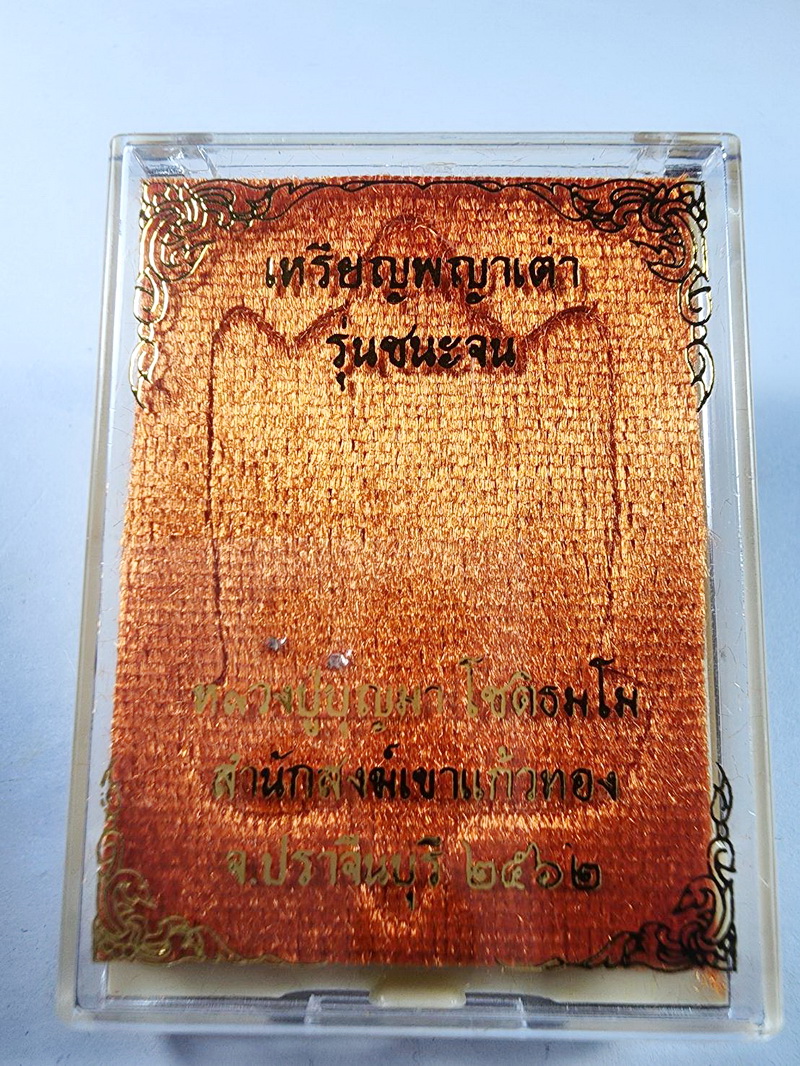 เหรียญพญาเต่า
รุ่นชนะจน
หลวงปู่บุญมา โชติธมฺโม
สำนักสงฆ์เขาแก้วทอง
จ.ปราจีนบุรี ๒๕๖๒